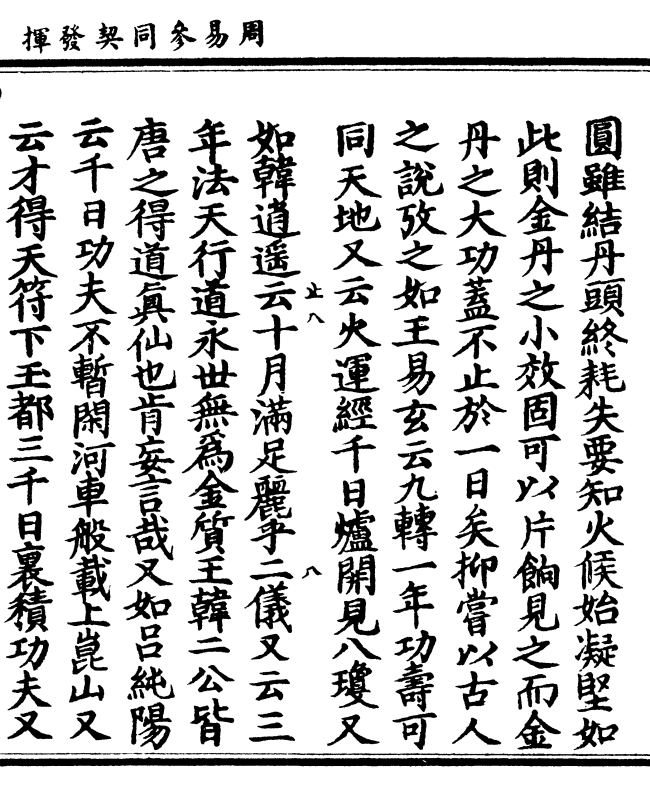 周易參同契發揮
圓雖結丹頭終耗失要知火候始凝堅如
此則金丹之小效固可以片餉見之而金
丹之大功蓋不止於一日矣抑嘗以古人
之說攷之如王易玄云九轉一年功壽可
同天地又云火運經千日爐開見八瓊又
如韓逍遥云十月滿足麗乎二儀又云三
年法天行道永世無爲金質王韓二公皆
唐之得道眞仙也肯妄言哉又如吕純陽
云千日功夫不暫閑河車般載上崑山又
云才得天符下玉都三千日裏積功夫又
止八
八